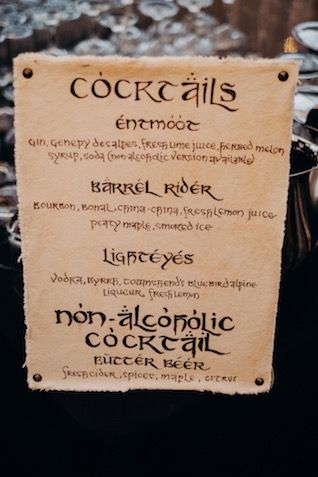 COCKTAILS
ENTMOOT
GIN, GENEPY DES ALPES, FRESH LIME JUICE, HERBED MELON
SYRUP, SODA (NON ALCOHOLIC VERSION AVAILABLE)
BARREL RIDER
BOURBON, BONAL, CHINA-CHINA, FRESH LEMON JUICE
PEATY MAPLE, SMOKED ICE
LIGHTEYES
VODKA, BYRRH, TOWNSHEND'S BLUEBIRD ALPINE
LIQUEUR, FRESH LEMON
NON-ALCOHOLIC
COCKTAIL
BUTTER BEER
FRESH CIDER, SPICES, MAPLE, CITRUS